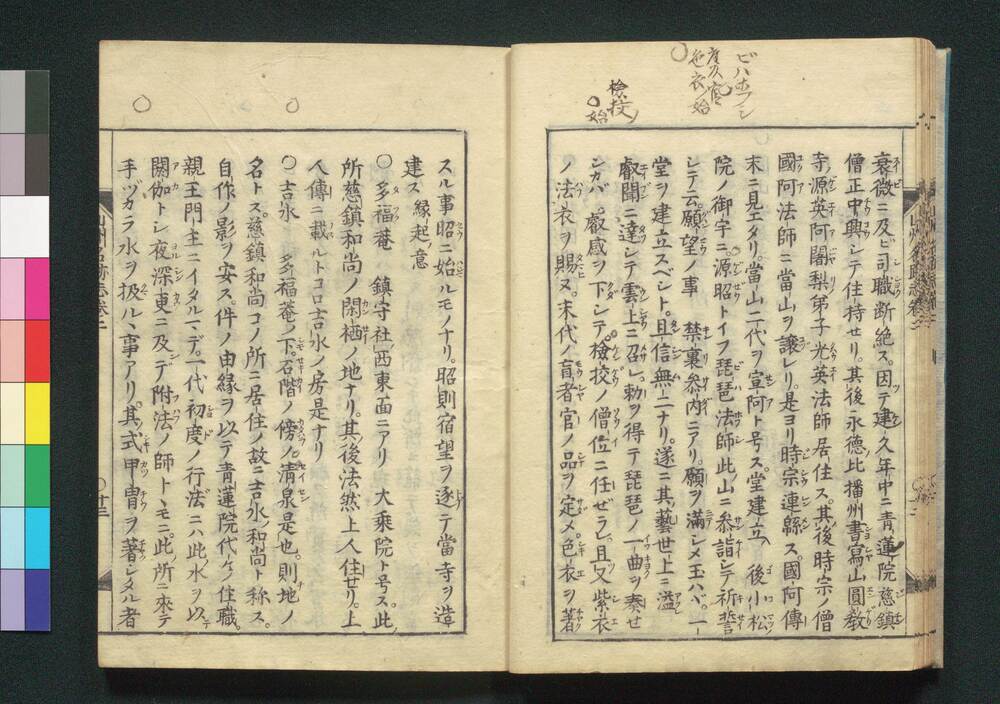 ビハホフシ
度々官
色衣ノ始
検校ノ
始
衰微ニ及ビ司職断絶ス。因テ建久年中ニ青蓮院慈鎮
僧正中興シテ住持セリ。其後永徳比播州書寫山圓教
寺ノ源英阿闍梨弟子光英法師居住ス。其後時宗ノ僧
國阿法師ニ當山ヲ譲レリ。是ヨリ時宗連緜ス。國阿傳
末ニ見エタリ。當山二代ヲ宣阿ト号ス。堂建立ハ後小松
院ノ御宇ニ。源昭トイフ琵琶法師此山ニ参詣シテ祈誓
シテ云願望ノ事 禁裏参内ニアリ。願ヲ滿シメ玉ハバ。一
堂ヲ建立スベシト。且信無二ナリ。遂ニ其藝世上ニ溢
叡聞ニ達シテ雲上ニ召シ。勅ヲ得テ琵琶ノ一曲ヲ奏セ
シカバ。叡感ヲ下シテ檢挍ノ僧位ニ任ゼラレ。且又紫衣
ノ法衣ヲ賜ヌ。末代ノ盲者官ノ品ヲ定メ。色衣ヲ著
スル事昭ニ始ルモノナリ。昭則宿望ヲ遂テ當寺ヲ造
建ス 縁起ノ意
○多福菴ハ 鎮守社ノ西東面ニアリ 大乘院ト号ス。此
所慈鎮和尚ノ閑栖ノ地ナリ。其後法然上人住セリ。上
人傳ニ載ルトコロ吉水ノ房是ナリ
○吉水 多福菴ノ下。石階ノ傍ノ清泉是也。則地ノ
名トス。慈鎮和尚コノ所ニ居住ノ故ニ吉水ノ和尚ト称ス。
自作ノ影ヲ安ス。件ノ由縁ヲ以テ青蓮院代々ノ住職。
親王門主ニイタルマデ。一代初度ノ行法ニハ此水ヲ以テ
閼伽トシ夜深更ニ及デ附法ノ師トトモニ。此所ニ來テ
手ヅカラ水ヲ扱ル事アリ。其式甲冑ヲ著シタル者